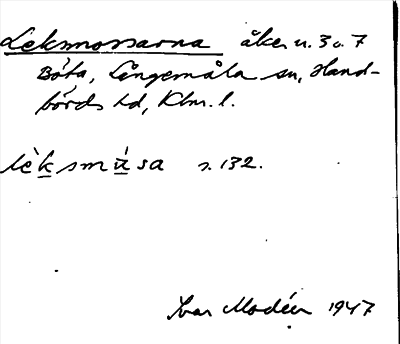 Leksmossarna åker n. 3 o. 7
Böta, Långemåla sn, Hand-
börds hd, Klm. l.
lèksmúsa s. 132.
Ivar Modéer 1947